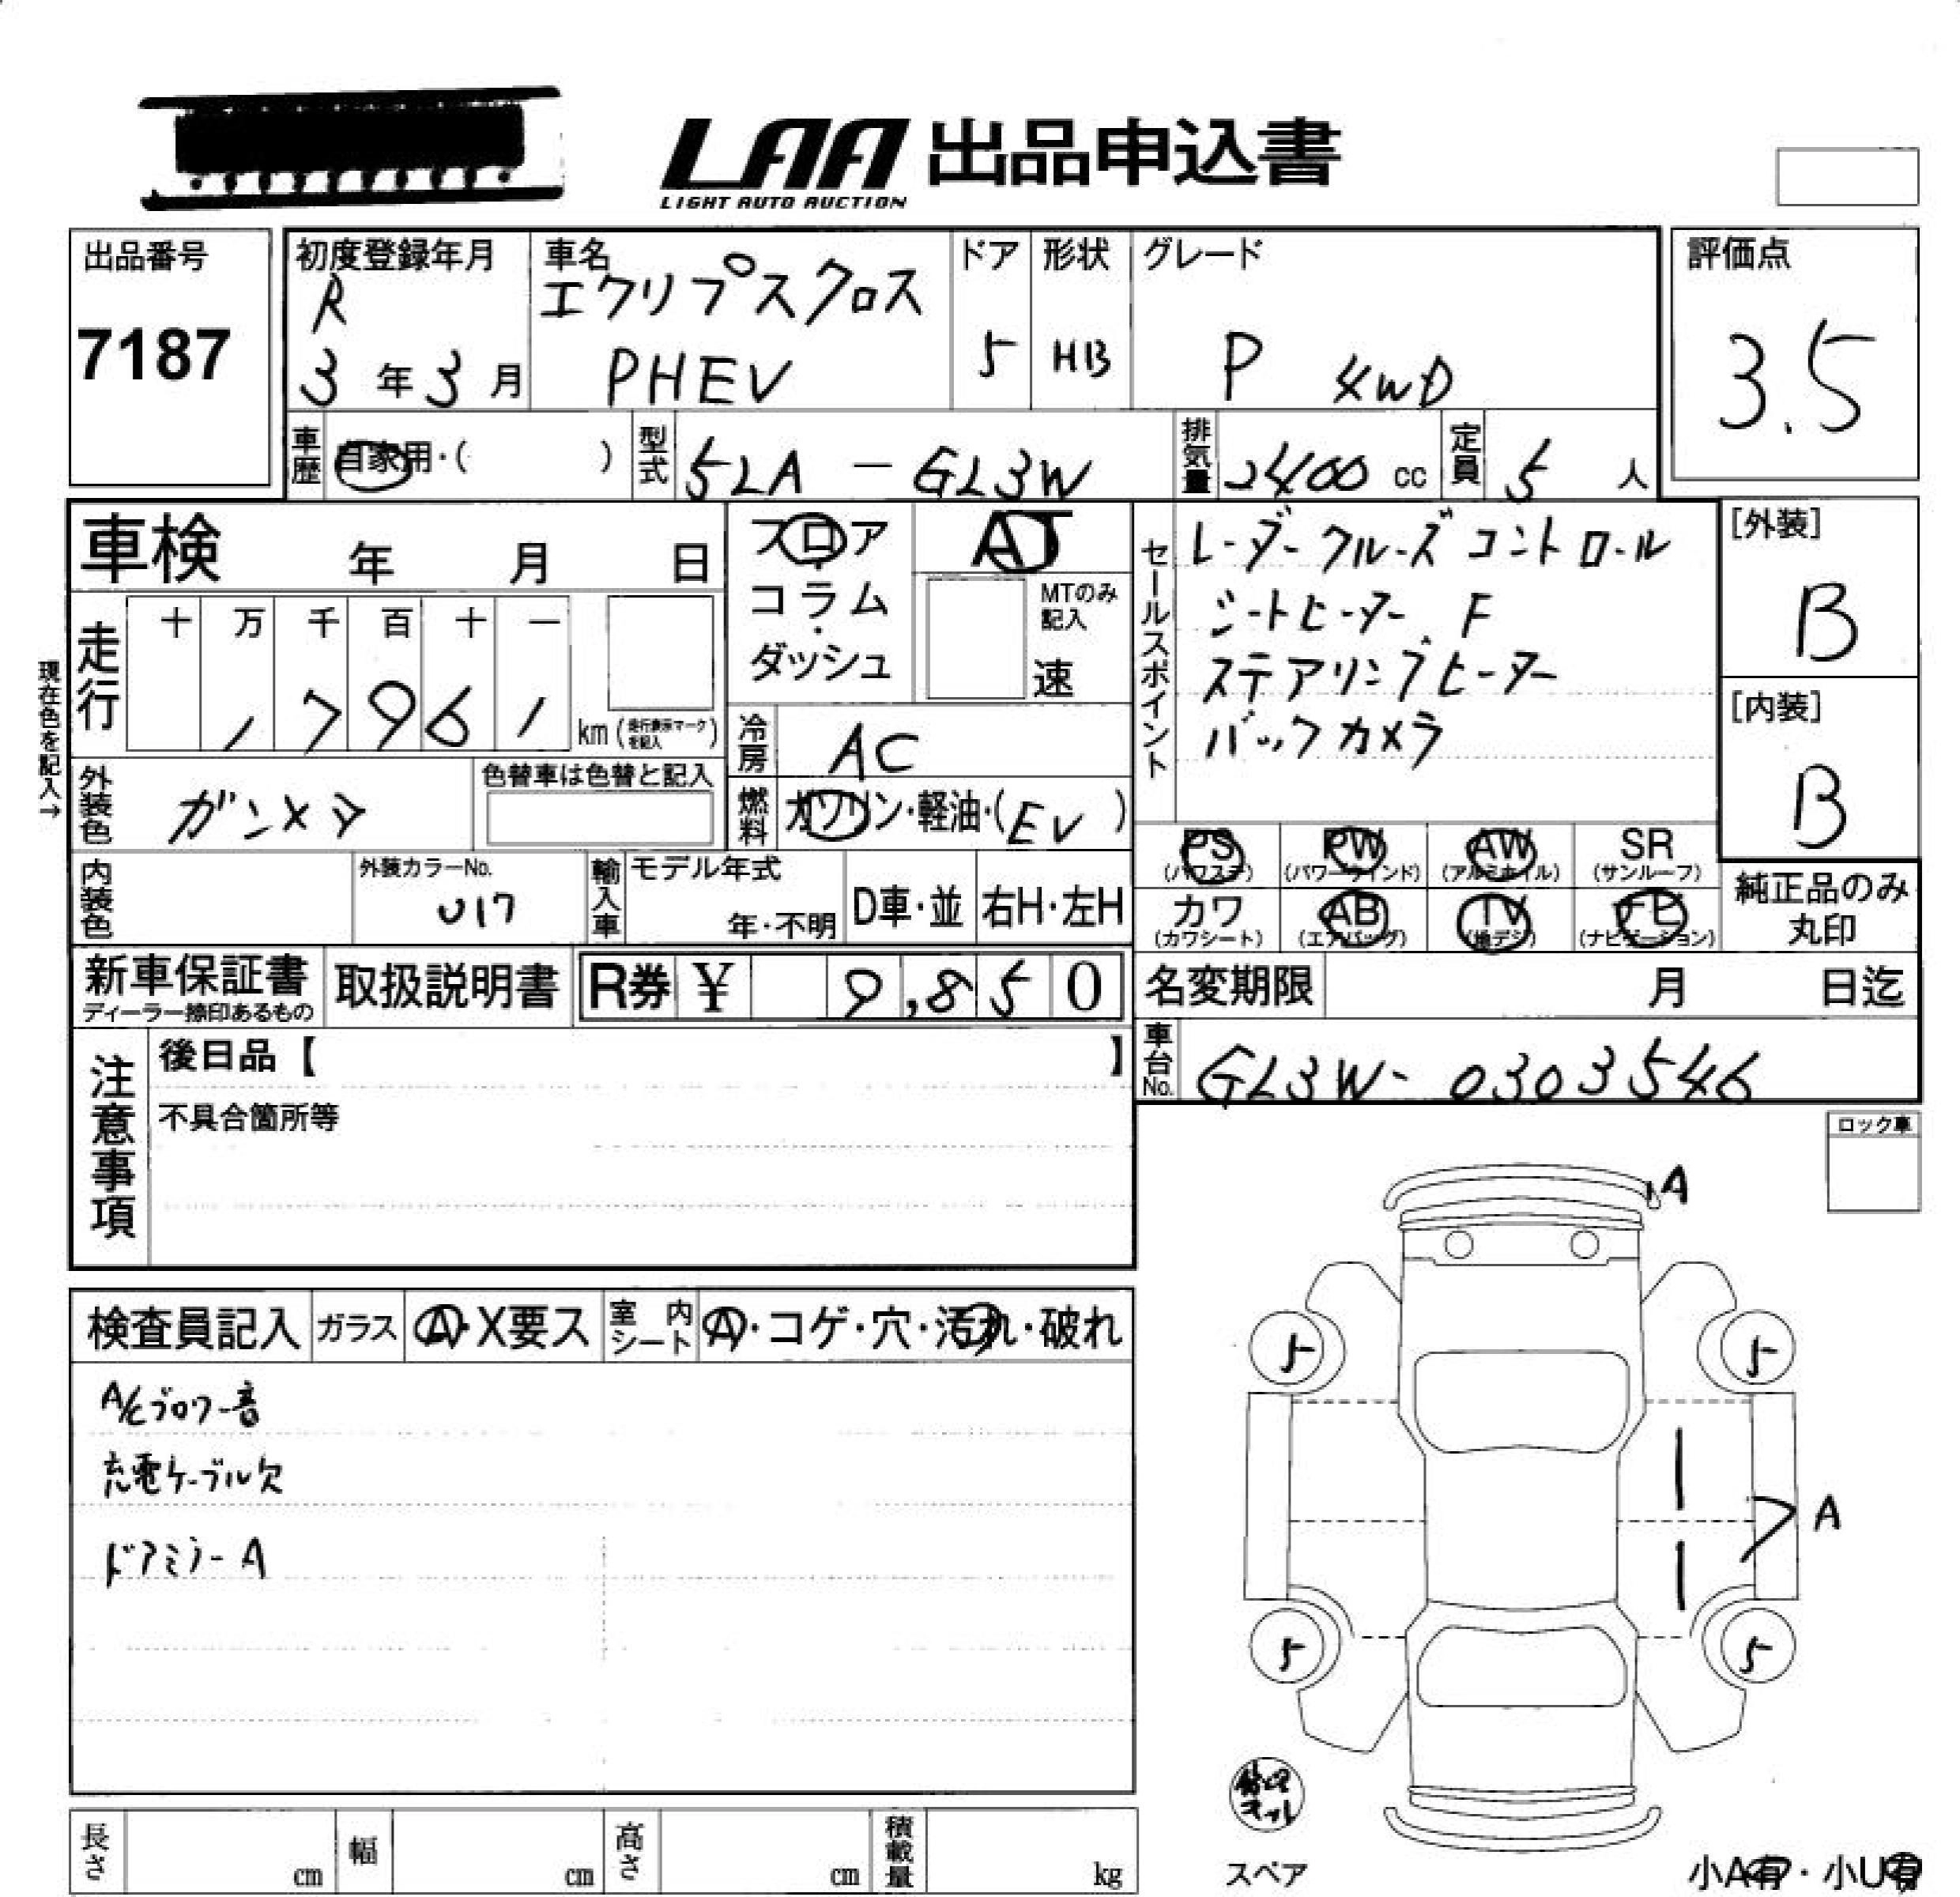 LAA 出品申込書
LIGHT AUTO AUCTION
出品番号
7187
初度登録年月
R
3 年 3 月
車名
エクリプスクロス
PHEV
ドア
5
形状
HB
グレード
P 4WD
評価点
3.5
車歴
自家用・( )
型式
5LA - GL3W
排気量
2400 cc
定員
5 人
車検 年 月 日
フロア
・
コラム
・
ダッシュ
AT
MTのみ
記入
速
セールスポイント
レーダークルーズコントロール
シートヒーター F
ステアリングヒーター
バックカメラ
[外装]
B
[内装]
B
走行
十 万 千 百 十 一
1 7 9 6 1 km (走行表示マークを記入)
現在色を記入→
冷房
AC
外装色
ガンメタ
色替車は色替と記入
燃料
ガソリン・軽油・(EV)
内装色
外装カラーNo.
U17
輸入車
モデル年式
年・不明
D車・並
右H・左H
PS
(パワステ)
PW
(パワーウインド)
AW
(アルミホイル)
SR
(サンルーフ)
カワ
(カワシート)
AB
(エアバッグ)
TV
(地デジ)
ナビ
(ナビゲーション)
純正品のみ
丸印
新車保証書
ディーラー捺印あるもの
取扱説明書
R券 ¥ 9,850
名変期限 月 日迄
車台No.
GL3W-0303546
注意事項
後日品【 】
不具合箇所等
ロック車
検査員記入
ガラス
A・X要ス
室内シート
A・コゲ・穴・汚れ・破れ
A/Cブロワー音
充電ケーブル欠
ドアミラーA
A
5
5
A
5
5
スペア
長さ cm
幅 cm
高さ cm
積載量 kg
小A有・小U有